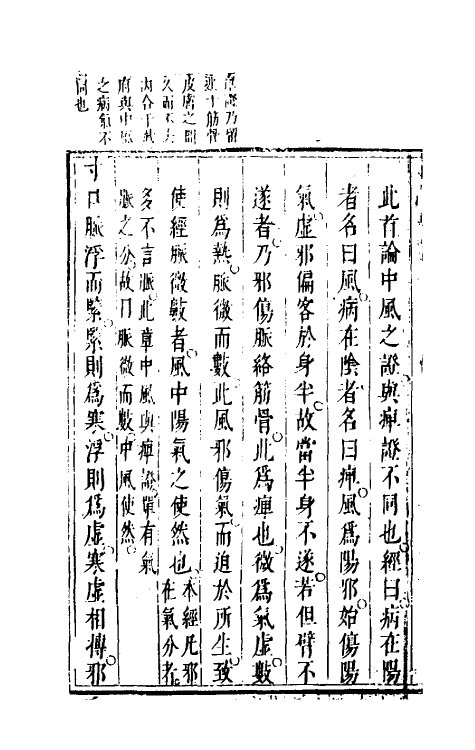 證乃留
于筋骨
皮膚之間
久而不去
內合于
府與中風
之病氣不
同也
此首論中風之證與痺證不同也經曰病在陽
者名曰風病在陰者名曰痺風爲陽邪始傷陽
氣虛邪偏客於身半故當半身不遂若但臂不
遂者乃邪傷脈絡筋骨此爲痺也微爲氣虛數
則爲熱脈微而數此風邪傷氣而迫於所生致
使經脈微數者風中陽氣之使然也本經凡邪
在氣分者
多不言脈此章中風與痺證單有氣
脈之分故曰脈微而數中風使然
寸口脈浮而緊緊則爲寒浮則爲虛寒虛相摶邪